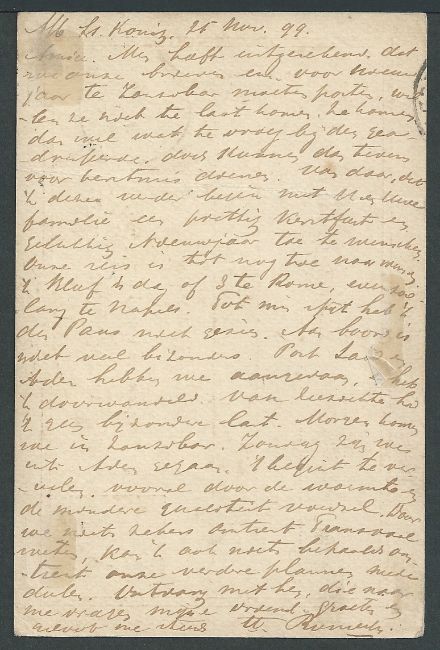 a/b St. König, 25 Nov. 99.
Amice. Men heeft uitgerekend, dat
we onze brieven en voor Nieuw
jaar te Zanzibar moeten posten, wil
len ze niet te laat komen. Ze komen
dan wel wat te vroeg bij den gea-
dresseerde, doch kunnen dan tevens
voor kerstmis dienen. Van daar, dat
'k deze weder begin met U en Uwe
familie een prettig Kerstfeest en
gelukkig Nieuwjaar toe te wenschen.
Onze reis is tot nog toe naar wensch.
'k Bleef 's da of 3 te Rome, even zoo
lang te Napels. Tot mijn spijt heb 'k
den Paus niet gezien. Aan boord is
niet veel bizonders. Port Said en
Aden hebben we aangedaan, heb
'k doorwandeld. Van zeeziekte had
'k geen bijzonder last. Morgen komen
we in Zanzibar. Zondag zijn we
uit Aden gegaan. 't begint te ver
velen, vooral door de warmte en
de mindere quantiteit voedsel. Daar
we niets zekers omtrent Transvaal
weten, kan 'k ook niets bepaalds om-
trent onze verdere plannen mede
deelen. Ontvang met hen, die naar
me vragen mijne vriend. groeten en
geloof me steeds U.